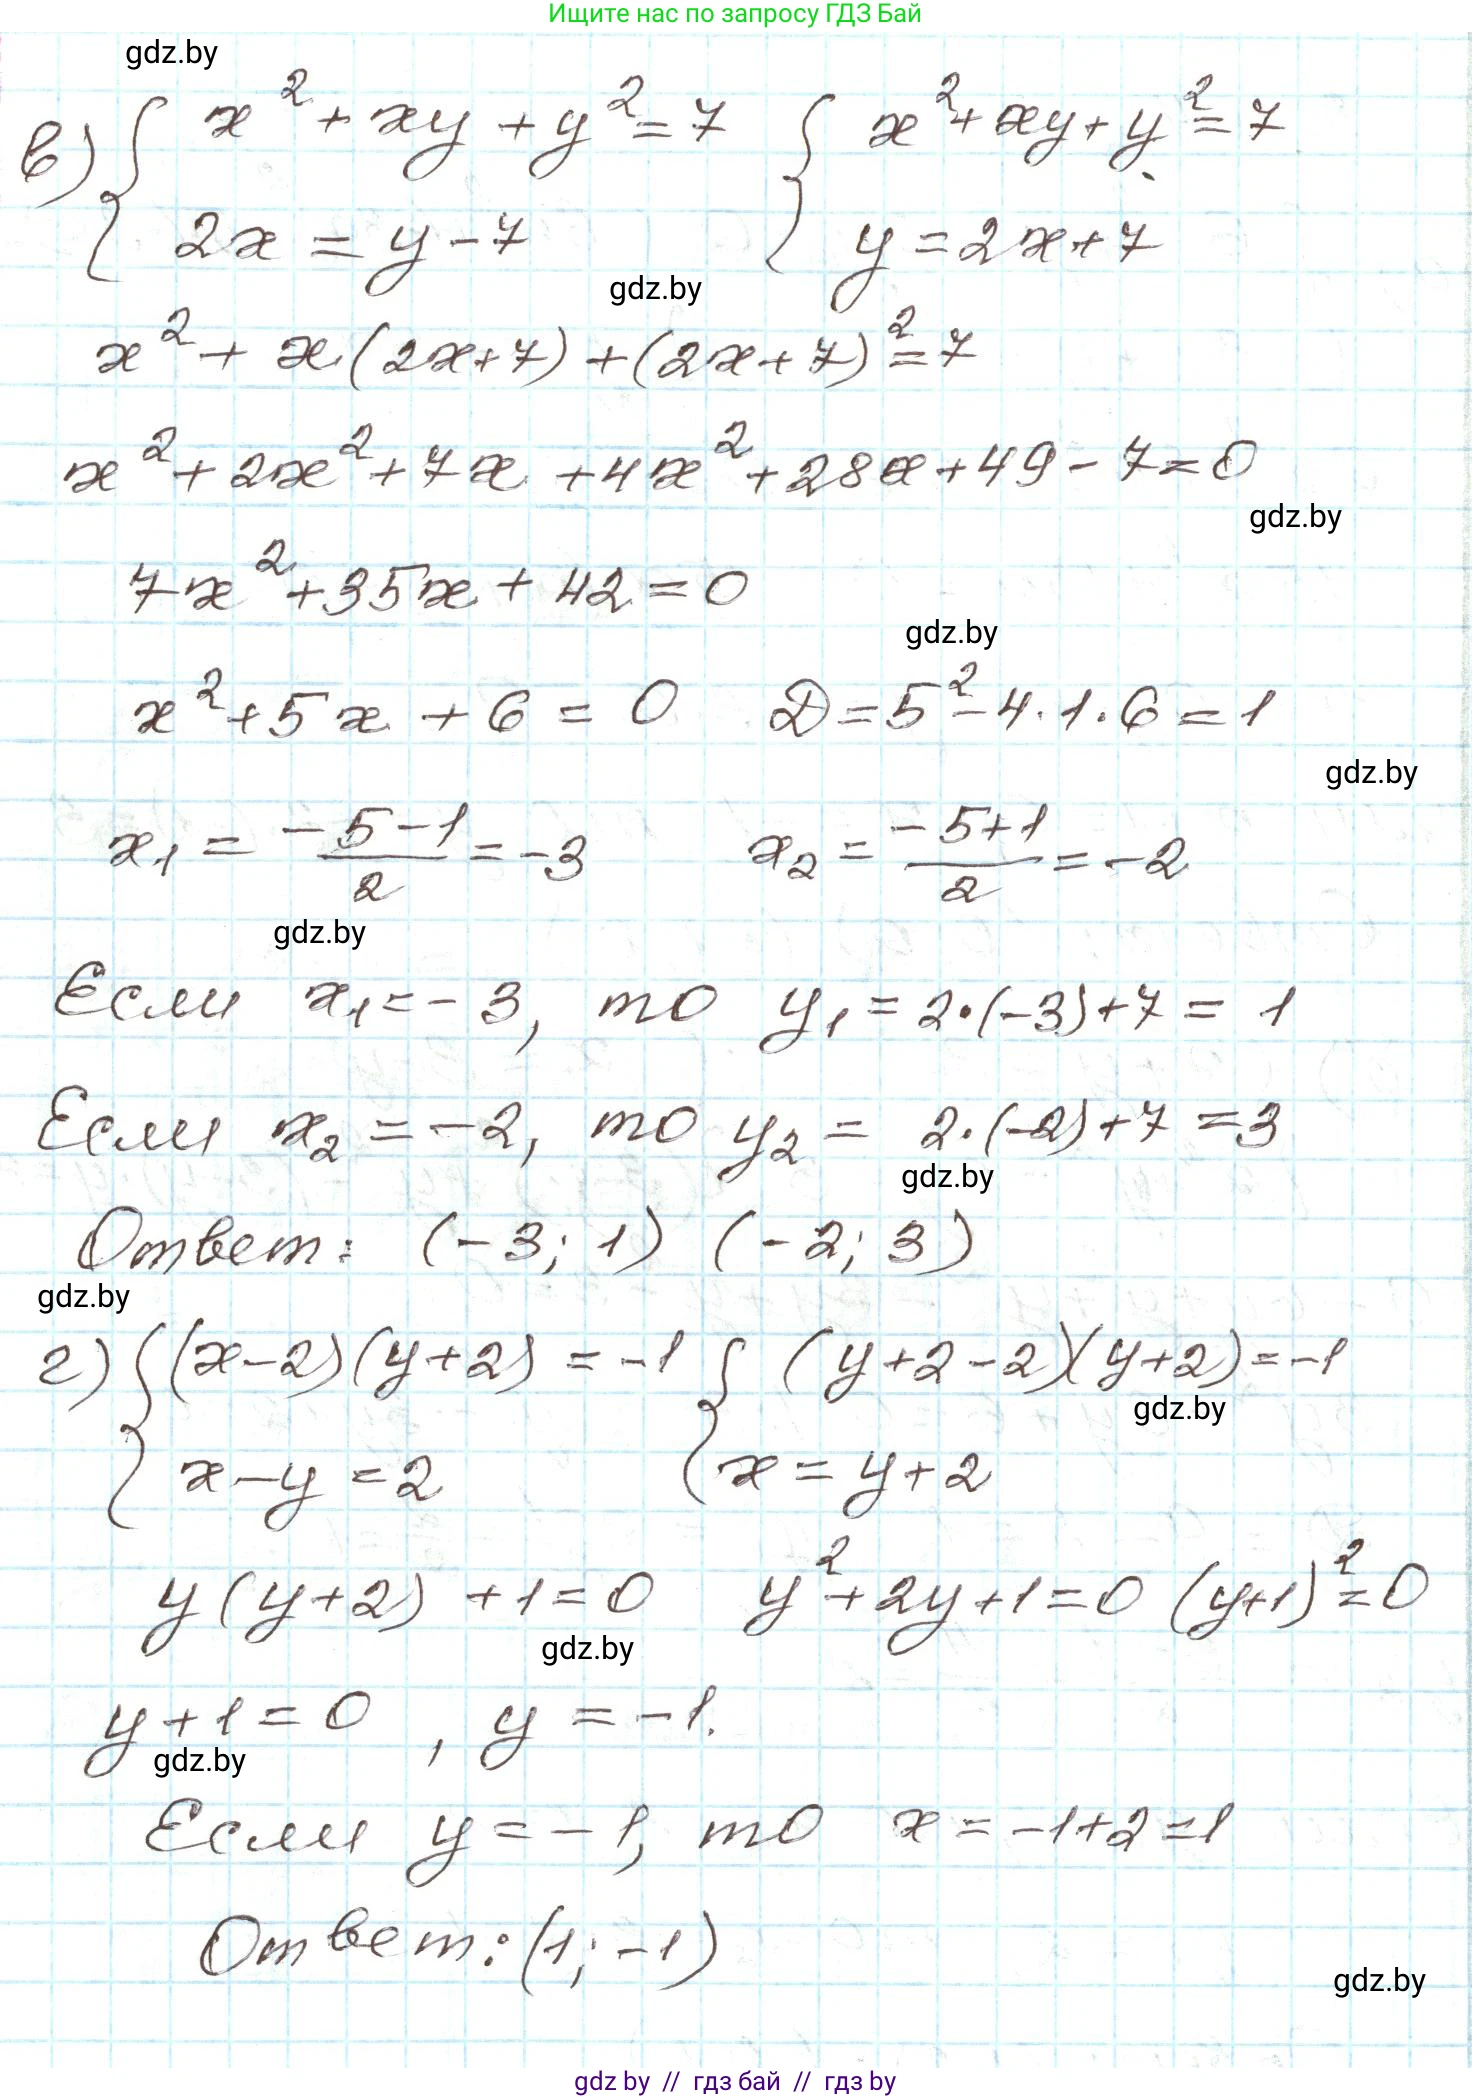 Ищите нас по запросу ГДЗ Бай
gdz.by
в) { x² + xy + y² = 7 { x² + xy + y² = 7
2x = y - 7 y = 2x + 7
gdz.by
x² + x(2x+7) + (2x+7)² = 7
x² + 2x² + 7x + 4x² + 28x + 49 - 7 = 0
gdz.by
7x² + 35x + 42 = 0
gdz.by
x² + 5x + 6 = 0 D = 5² - 4·1·6 = 1
gdz.by
x₁ = (-5-1)/2 = -3 x₂ = (-5+1)/2 = -2
gdz.by
Если x₁ = -3, то y₁ = 2·(-3)+7 = 1
Если x₂ = -2, то y₂ = 2·(-2)+7 = 3
gdz.by
Ответ: (-3; 1) (-2; 3)
gdz.by
г) { (x-2)(y+2) = -1 { (y+2-2)(y+2) = -1
gdz.by
x - y = 2 x = y + 2
y(y+2) + 1 = 0 y² + 2y + 1 = 0 (y+1)² = 0
gdz.by
y + 1 = 0 , y = -1.
gdz.by
Если y = -1, то x = -1+2 = 1
Ответ: (1; -1)
gdz.by
gdz by // гдз бай // гдз by